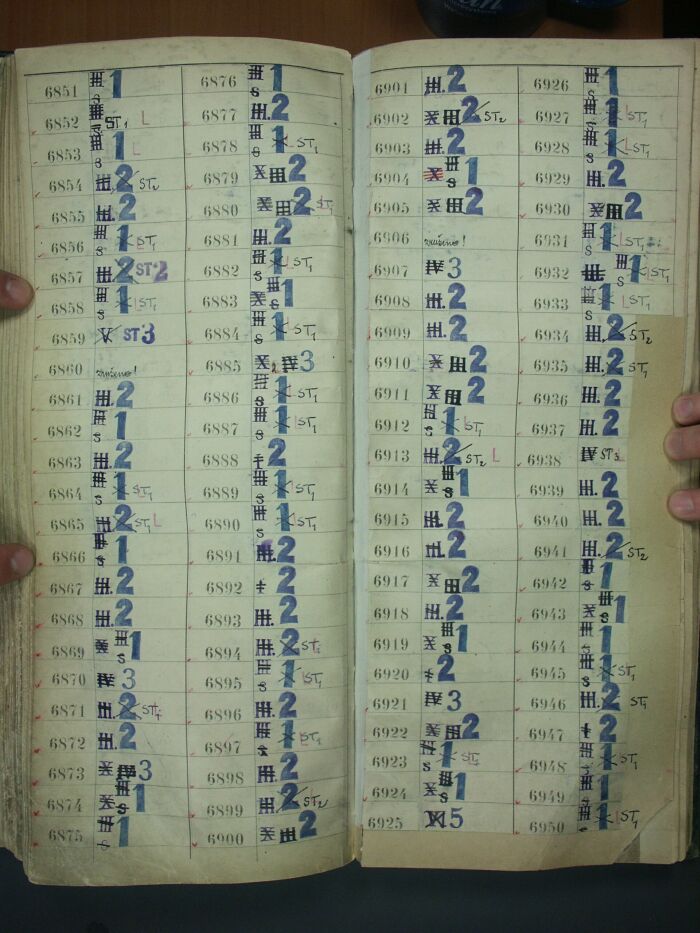 6851 III s 1
6852 III ST1 L
6853 III s 1 L
6854 III. 2 ST2
6855 III. 2
6856 III s 1 ST1
6857 III. 2 ST 2
6858 III s 1 LST1
6859 V ST 3
6860 zrušeno!
6861 III. 2
6862 III s 1
6863 III. 2
6864 III s 1 ST1
6865 III. 2 ST1 L
6866 III s 1
6867 III. 2
6868 III. 2
6869 X III s 1
6870 IV 3
6871 III. 2 ST1
6872 III. 2
6873 X IV 3
6874 X III s 1
6875 III s 1
6876 III s 1
6877 III. 2
6878 III s 1 ST1
6879 X III 2
6880 X III 2 ST1
6881 III. 2
6882 III s 1 LST1
6883 X III s 1
6884 III s 1 LST1
6885 X IV 3
6886 III s 1 ST1
6887 III s 1 LST1
6888 2
6889 III s 1 LST1
6890 III s 1 LST1
6891 III. 2
6892 2
6893 III. 2
6894 III. 2 ST1
6895 III s 1 LST1
6896 III. 2
6897 III s 1 ST1
6898 III. 2
6899 III. 2 ST2
6900 X III 2
6901 III. 2
6902 X III 2 ST2
6903 III. 2
6904 X III s 1
6905 X III 2
6906 zrušeno!
6907 IV 3
6908 III. 2
6909 III. 2
6910 X III 2
6911 X III 2
6912 III s 1 LST1
6913 III. 2 ST2 L
6914 X III s 1
6915 III. 2
6916 III. 2
6917 X III 2
6918 III. 2
6919 X III s 1
6920 2
6921 IV 3
6922 X III 2
6923 III s 1 ST1
6924 X III s 1
6925 5
6926 III s 1
6927 III s 1 LST1
6928 III s 1 LST1
6929 III. 2
6930 X III 2
6931 III s 1 LST1
6932 III s 1 LST1
6933 III s 1 LST1
6934 III. 2 ST2
6935 III. 2 ST1
6936 III. 2
6937 III. 2
6938 IV ST3
6939 III. 2
6940 III. 2
6941 III. 2 ST2
6942 III s 1
6943 X III s 1
6944 III s 1
6945 III s 1 ST1
6946 III. 2 ST1
6947 2
6948 III s 1 ST1
6949 III s 1
6950 III s 1 LST1